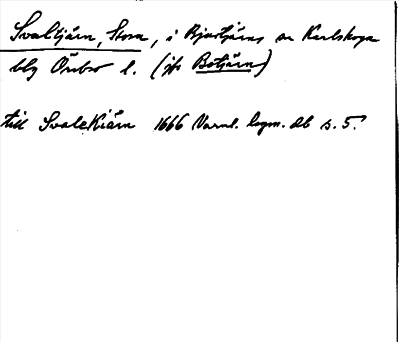 Svaltjärn, Stora, i Bjurtjärns sn Karlskoga
blg Örebro l. (jfr Botjärn)
till Svalekiärn 1666 Varml. lagm. db s. 5.